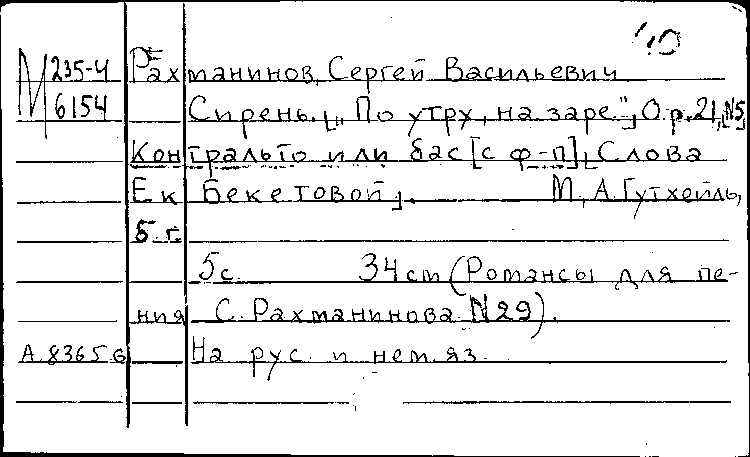 40
М 235-4 Рахманинов, Сергей Васильевич
6154 Сирень. [„По утру, на заре."], Op. 21, [N5]
Контральто или бас [с ф-п], [Слова
Ек Бекетовой]. М, А. Гутхейль,
б. г.
5с. 34 cm (Романсы для пе-
ния С. Рахманинова N 29).
А. 8365 б На рус. и нем. яз.